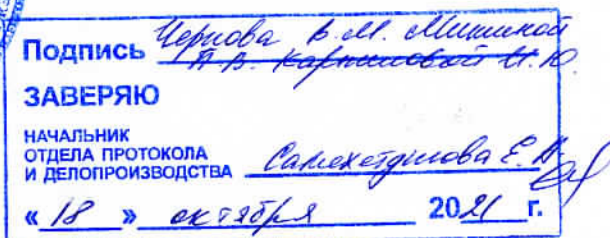 Подпись Чернова В.М. Мишиной
А.В. Карниловой И.Ю.
ЗАВЕРЯЮ
НАЧАЛЬНИК
ОТДЕЛА ПРОТОКОЛА
И ДЕЛОПРОИЗВОДСТВА
« 18 » октября 2021 г.